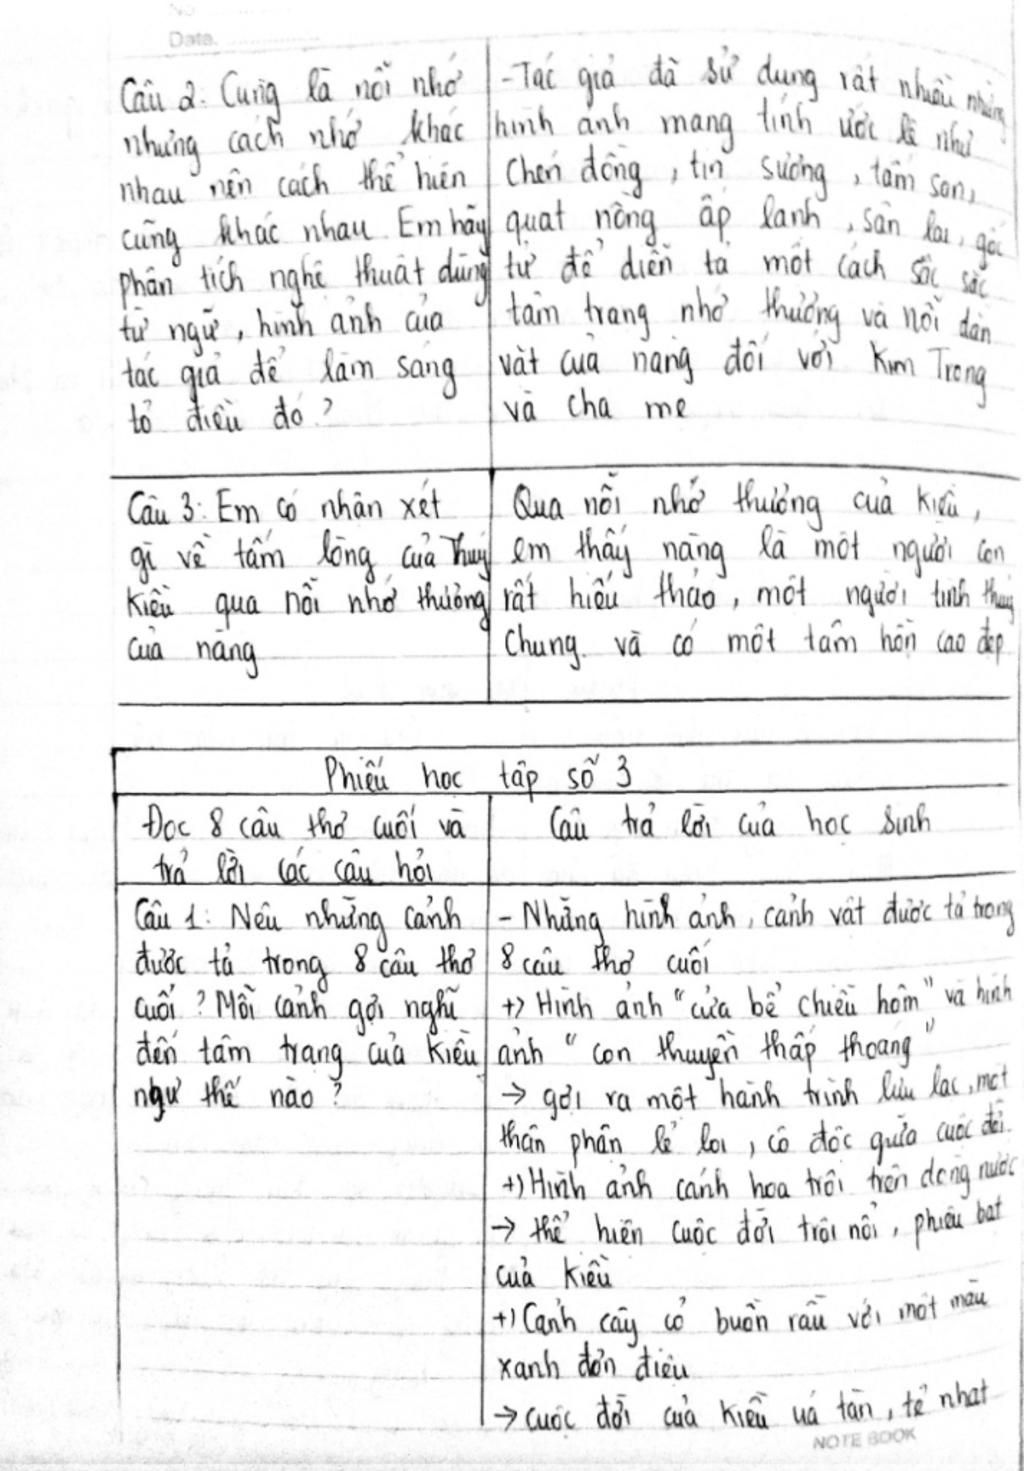 No
Date.
Câu 2: Cũng là nỗi nhớ
nhưng cách nhớ khác
nhau nên cách thể hiện
cũng khác nhau. Em hãy
phân tích nghệ thuật dùng
từ ngữ, hình ảnh của
tác giả để làm sáng
tỏ điều đó?
- Tác giả đã sử dụng rất nhiều những
hình ảnh mang tính ước lệ như
Chén đồng, tin sương, tấm son,
quạt nồng ấp lạnh, sân lai, gốc
tử để diễn tả một cách sâu sắc
tâm trạng nhớ thương và nỗi dằn
vặt của nàng đối với Kim Trọng
và cha mẹ
Câu 3: Em có nhận xét
gì về tấm lòng của Thuý
Kiều qua nỗi nhớ thương
của nàng
Qua nỗi nhớ thương của Kiều,
em thấy nàng là một người con
rất hiếu thảo, một người tình thuỷ
Chung. và có một tâm hồn cao đẹp
Phiếu học tập số 3
Đọc 8 câu thơ cuối và
trả lời các câu hỏi
Câu trả lời của học sinh
Câu 1: Nêu những cảnh
được tả trong 8 câu thơ
cuối? Mỗi cảnh gợi nghĩ
đến tâm trạng của Kiều
như thế nào?
- Những hình ảnh, cảnh vật được tả trong
8 câu thơ cuối
+) Hình ảnh "cửa bể chiều hôm" và hình
ảnh "con thuyền thấp thoáng"
→ gợi ra một hành trình lưu lạc, một
thân phận lẻ loi, cô độc giữa cuộc đời.
+) Hình ảnh cánh hoa trôi trên dòng nước
→ thể hiện cuộc đời trôi nổi, phiêu bạt
của Kiều
+) Cảnh cây cỏ buồn rầu với một màu
xanh đơn điệu
→ cuộc đời của Kiều úa tàn, tẻ nhạt
NOTE BOOK